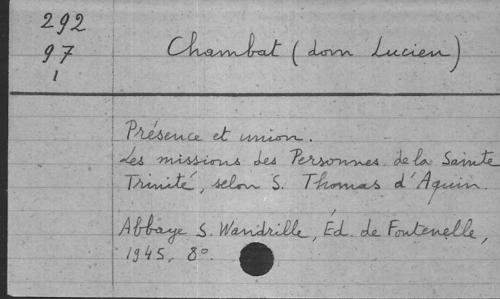 292
97
1
Chambat (dom Lucien)
Présence et union.
Les missions des Personnes de la Sainte
Trinité, selon S. Thomas d'Aquin.
Abbaye S. Wandrille, Éd. de Fontenelle,
1945, 8º.